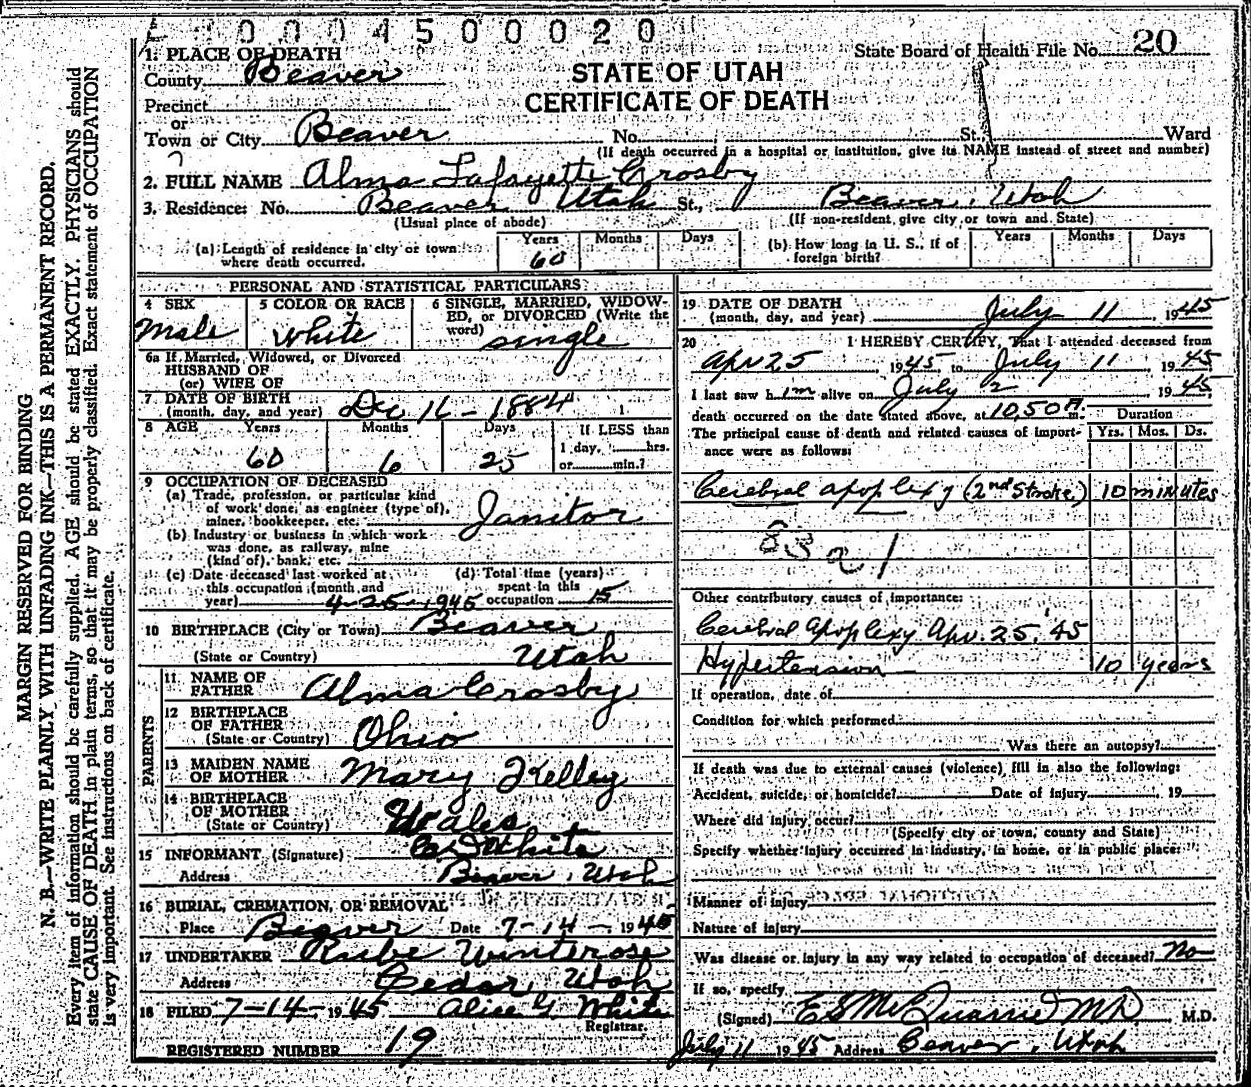 0 0 4 5 0 0 0 2 0
State Board of Health File No. 20
1. PLACE OF DEATH
County Beaver
STATE OF UTAH
CERTIFICATE OF DEATH
Precinct
or
Town or City Beaver No. St. Ward
(If death occurred in a hospital or institution, give its NAME instead of street and number)
2. FULL NAME Alma Lafayette Crosby
3. Residence: No. Beaver Utah St., Beaver, Utah
(Usual place of abode) (If non-resident, give city or town and State)
(a) Length of residence in city or town where death occurred. Years 60 Months Days
(b) How long in U. S., if of foreign birth? Years Months Days
PERSONAL AND STATISTICAL PARTICULARS
4 SEX Male
5 COLOR OR RACE White
6 SINGLE, MARRIED, WIDOWED, or DIVORCED (Write the word) single
6a If Married, Widowed, or Divorced
HUSBAND OF
(or) WIFE OF
7 DATE OF BIRTH
(month, day, and year) Dec 16 - 1884
8 AGE Years 60 Months 6 Days 25 If LESS than 1 day, hrs. or min.?
9 OCCUPATION OF DECEASED
(a) Trade, profession, or particular kind
of work done, as engineer (type of),
miner, bookkeeper, etc. Janitor
(b) Industry or business in which work
was done, as railway, mine
(kind of), bank, etc.
(c) Date deceased last worked at
this occupation (month and
year) 4-25-1945
(d) Total time (years)
spent in this
occupation 15
10 BIRTHPLACE (City or Town) Beaver
(State or Country) Utah
PARENTS
11 NAME OF
FATHER Alma Crosby
12 BIRTHPLACE
OF FATHER
(State or Country) Ohio
13 MAIDEN NAME
OF MOTHER Mary Kelley
14 BIRTHPLACE
OF MOTHER
(State or Country) Wales
15 INFORMANT (Signature) White
Address Beaver, Utah
16 BURIAL, CREMATION, OR REMOVAL
Place Beaver Date 7-14-1945
17 UNDERTAKER Rube Winterose
Address Cedar, Utah
18 FILED 7-14-1945 Alice G. White
Registrar.
REGISTERED NUMBER 19
19 DATE OF DEATH
(month, day, and year) July 11 1945
20 I HEREBY CERTIFY, That I attended deceased from
Apr 25, 1945 to July 11 1945
I last saw him alive on July 2 1945,
death occurred on the date stated above, at 10,50 A m. Duration
The principal cause of death and related causes of importance were as follows: Yrs. Mos. Ds.
Cerebral apoplexy (2nd Stroke) 10 minutes
83 a 1
Other contributory causes of importance:
Cerebral Apoplexy Apr. 25, '45
Hypertension 10 years
If operation, date of
Condition for which performed
Was there an autopsy?
If death was due to external causes (violence), fill in also the following:
Accident, suicide, or homicide? Date of injury , 19
Where did injury occur?
(Specify city or town, county and State)
Specify whether injury occurred in industry, in home, or in public place:
Manner of injury
Nature of injury
Was disease or injury in any way related to occupation of deceased? No
If so, specify
(Signed) E S McQuarrie MD, M.D.
July 11 1945 Address Beaver, Utah
MARGIN RESERVED FOR BINDING
N. B.—WRITE PLAINLY, WITH UNFADING INK—THIS IS A PERMANENT RECORD.
Every item of information should be carefully supplied. AGE should be stated EXACTLY. PHYSICIANS should
state CAUSE OF DEATH in plain terms, so that it may be properly classified. Exact statement of OCCUPATION
is very important. See instructions on back of certificate.